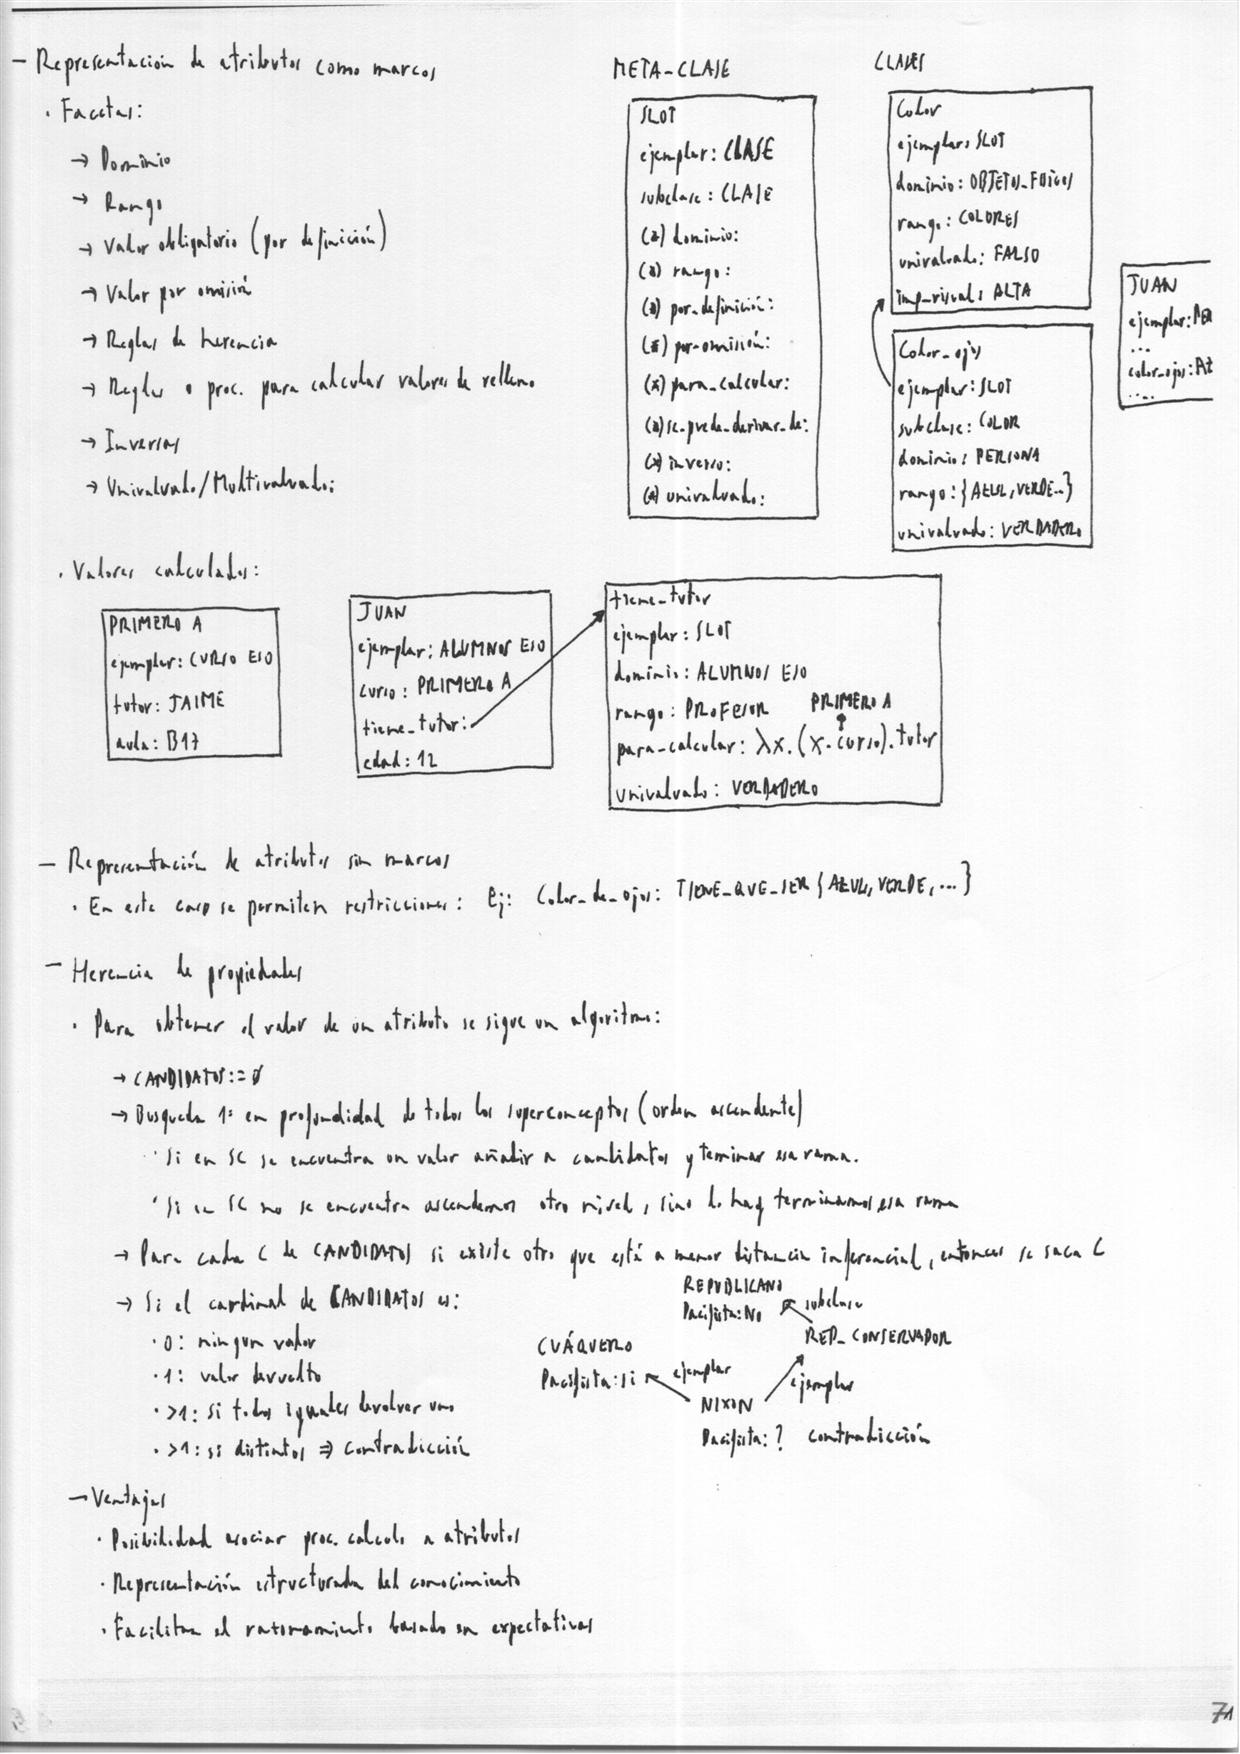 - Representación de atributos como marcos
· Facetas:
→ Dominio
→ Rango
→ Valor obligatorio (por definición)
→ Valor por omisión
→ Reglas de herencia
→ Reglas o proc. para calcular valores de relleno
→ Inversas
→ Univalvado/Multivalvado:
META-CLASE
SLOT
ejemplar: CLASE
subclase: CLASE
(*) dominio:
(*) rango:
(*) por-definición:
(*) por-omisión:
(*) para_calcular:
(*) se_puede_derivar_de:
(*) inverso:
(*) univalvado:
CLASES
Color
ejemplar: SLOT
dominio: OBJETOS_FÍSICOS
rango: COLORES
univalvado: FALSO
imp_visual: ALTA
Color_ojos
ejemplar: SLOT
subclase: COLOR
dominio: PERSONA
rango: {AZUL, VERDE..}
univalvado: VERDADERO
JUAN
ejemplar: PER
...
color_ojos: AZ
....
· Valores calculados:
PRIMERO A
ejemplar: CURSO ESO
tutor: JAIME
aula: B17
JUAN
ejemplar: ALUMNOS ESO
curso: PRIMERO A
tiene_tutor:
edad: 12
tiene_tutor
ejemplar: SLOT
dominio: ALUMNOS ESO
rango: PROFESOR PRIMERO A
para_calcular: λx.(x.curso).tutor
univalvado: VERDADERO
- Representación de atributos sin marcos
· En este caso se permiten restricciones: Ej: Color_de_ojos: TIENE_QUE_SER {AZUL, VERDE, ...}
- Herencia de propiedades
· Para obtener el valor de un atributo se sigue un algoritmo:
→ CANDIDATOS := ∅
→ Busqueda 1º en profundidad de todos los superconceptos (orden ascendente)
· Si en SC se encuentra un valor añadir a candidatos y teminar esa rama.
· Si en SC no se encuentra ascendemos otro nivel, si no lo hay terminamos esa rama
→ Para cada C de CANDIDATOS si existe otro que está a menor distancia inferencial, entonces se saca C
→ Si el cardinal de CANDIDATOS es:
· 0: ningun valor
· 1: valor devuelto
· >1: si todos iguales devolver uno
· >1: si distintos ⇒ contradicción
REPUBLICANO
Pacifista: No
subclase
REP_CONSERVADOR
CUÁQUERO
Pacifista: si
ejemplar
ejemplar
NIXON
Pacifista: ? contradicción
- Ventajas
· Posibilidad asociar proc. calculo a atributos
· Representación estructurada del conocimiento
· Facilitan el razonamiento basado en expectativas
71